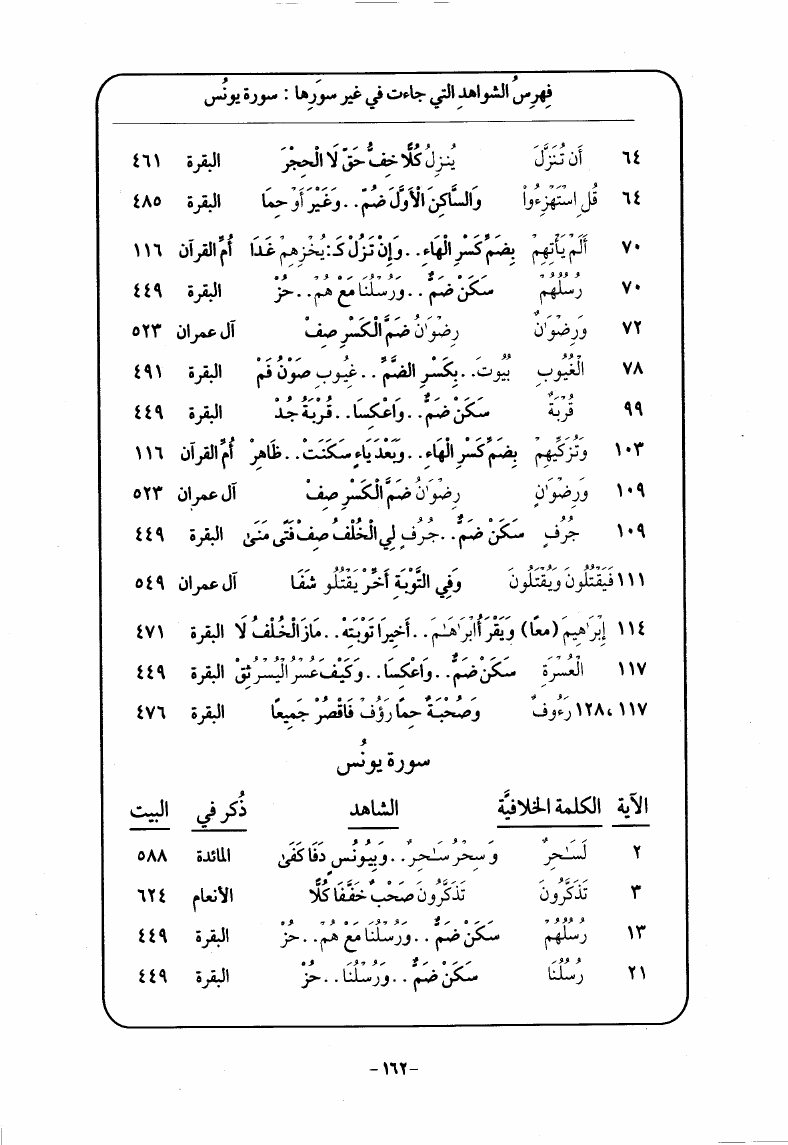 فِهرِسُ الشواهد التي جاءت في غير سوَرِها : سورة يونُس
٦٤ أَن تُنَزَّلَ يُنزِلُ كُلًّا خِفُّ حَقٌّ لَا الْحِجْرَ البقرة ٤٦١
٦٤ قُلِ اسْتَهْزِءُوا وَالسَّاكِنَ الأَوَّلَ ضُمّ..وَغَيْرَ أَو حِمًا البقرة ٤٨٥
٧٠ أَلَمْ يَأْتِهِمْ بِضَمِّ كَسْرِ الْهَاءِ..وَإِن تَزُلْ كَـ:يُخْزِهِمْ غَدَا أُمّ القرآن ١١٦
٧٠ رُسُلُهُم سَكِّنْ ضَمُّ..وَرُسْلُنَا مَعْ هُمْ..حُزْ البقرة ٤٤٩
٧٢ وَرِضْوَٰنٌ رِضْوَٰنُ ضَمُّ الْكَسْرِ صِفْ آل عمران ٥٢٣
٧٨ الْغُيُوبِ بُيُوتَ..بِكَسْرِ الضَّمِّ..غُيُوبِ صَوْنُ فَمْ البقرة ٤٩١
٩٩ قُرْبَةٌ سَكِّنْ ضَمُّ..وَاعْكِسَا..قُرْبَةُ جُدْ البقرة ٤٤٩
١٠٣ وَتُزَكِّيهِمْ بِضَمِّ كَسْرِ الْهَاءِ..وَبَعْدَ يَاءٍ سَكَنَتْ..ظَاهِرْ أُمّ القرآن ١١٦
١٠٩ وَرِضْوَٰنٍ رِضْوَٰنُ ضَمُّ الْكَسْرِ صِفْ آل عمران ٥٢٣
١٠٩ جُرُفٍ سَكِّنْ ضَمُّ..جُرُفٍ لِي الْخُلْفُ صِفْ فَتًى مَنَىٰ البقرة ٤٤٩
١١١ فَيَقْتُلُونَ وَيُقْتَلُونَ وَفِي التَّوْبَةِ أَخِّرْ يَقْتُلُو شَفَا آل عمران ٥٤٩
١١٤ إِبْرَٰهِيمَ (معًا) وَيَقْرَأُ إِبْرَاهَـٰمَ..أَخِيرَا تَوْبَتِهْ..مَازَ الْخُلْفُ لَا البقرة ٤٧١
١١٧ الْعُسْرَةِ سَكِّنْ ضَمُّ..وَاعْكِسَا..وَكَيْفَ عُسْرُ الْيُسْرُ ثِقْ البقرة ٤٤٩
١١٧ ،١٢٨ رَءُوفٌ وَصُحْبَةٌ حِمًا رَؤُفْ فَاقْصُرْ جَمِيعًا البقرة ٤٧٦
سورة يونُس
الآية الكلمة الخلافيَّة الشاهد ذُكر في البيت
٢ لَسَـٰحِرٌ وَسِحْرُ سَـٰحِرٌ..وَبِيُونُسٍ دَفَا كَفَىٰ المائدة ٥٨٨
٣ تَذَكَّرُونَ تَذَكَّرُونَ صَحْبٌ خَفَّفَا كُلًّا الأنعام ٦٢٤
١٣ رُسُلُهُم سَكِّنْ ضَمُّ..وَرُسْلُنَا مَعْ هُمْ..حُزْ البقرة ٤٤٩
٢١ رُسُلُنَا سَكِّنْ ضَمُّ..وَرُسْلُنَا..حُزْ البقرة ٤٤٩
-١٦٢-